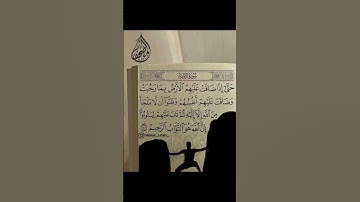 حَتَّىٰ إِذَا ضَاقَتْ عَلَيْهِمُ الْأَرْضُ بِمَا رَحُبَتْ
وَضَاقَتْ عَلَيْهِمْ أَنْفُسُهُمْ وَظَنُّوا أَنْ لَا مَلْجَأَ
مِنَ اللَّهِ إِلَّا إِلَيْهِ ثُمَّ تَابَ عَلَيْهِمْ لِيَتُوبُوا
إِنَّ اللَّهَ هُوَ التَّوَّابُ الرَّحِيمُ